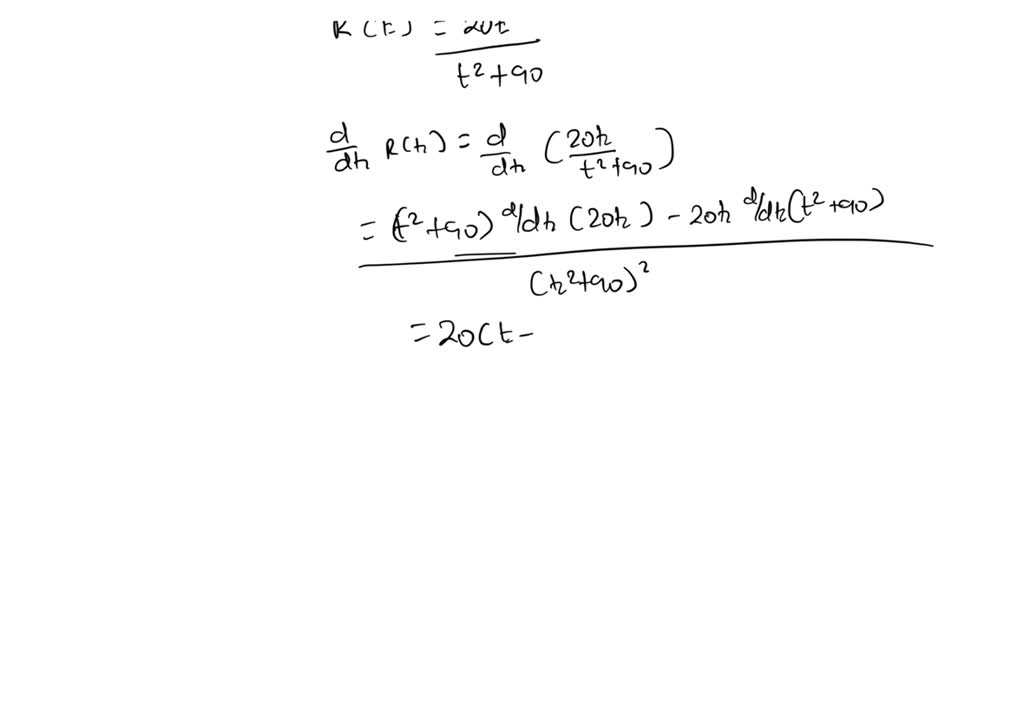 R(t) = 20t / t²+90
d/dt R(t) = d/dt (20t / t²+90)
= (t²+90) d/dt (20t) - 20t d/dt (t²+90)
(t²+90)²
= 20(t -